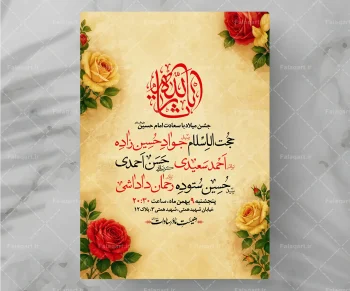 یا ثارالله
جشن میلاد با سعادت امام حسین
حجت الاسلام جواد حسین زاده
احمد سعیدی حسن احمدی
حسین ستوده رحمان داداشی
پنجشنبه ۹ بهمن ماه، ساعت ۲۰:۳۰
خیابان شهید همتی، شهید همتی ۳، پلاک ۱۲